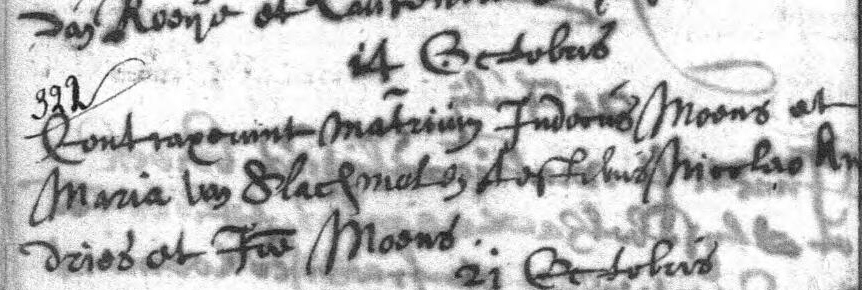 van Roeije et
14 Octobris
322
Contraxerunt matrium Judocus Moens et
Maria van Slachmolen testibus Nicolao An
dries et Moens
21 Octobris